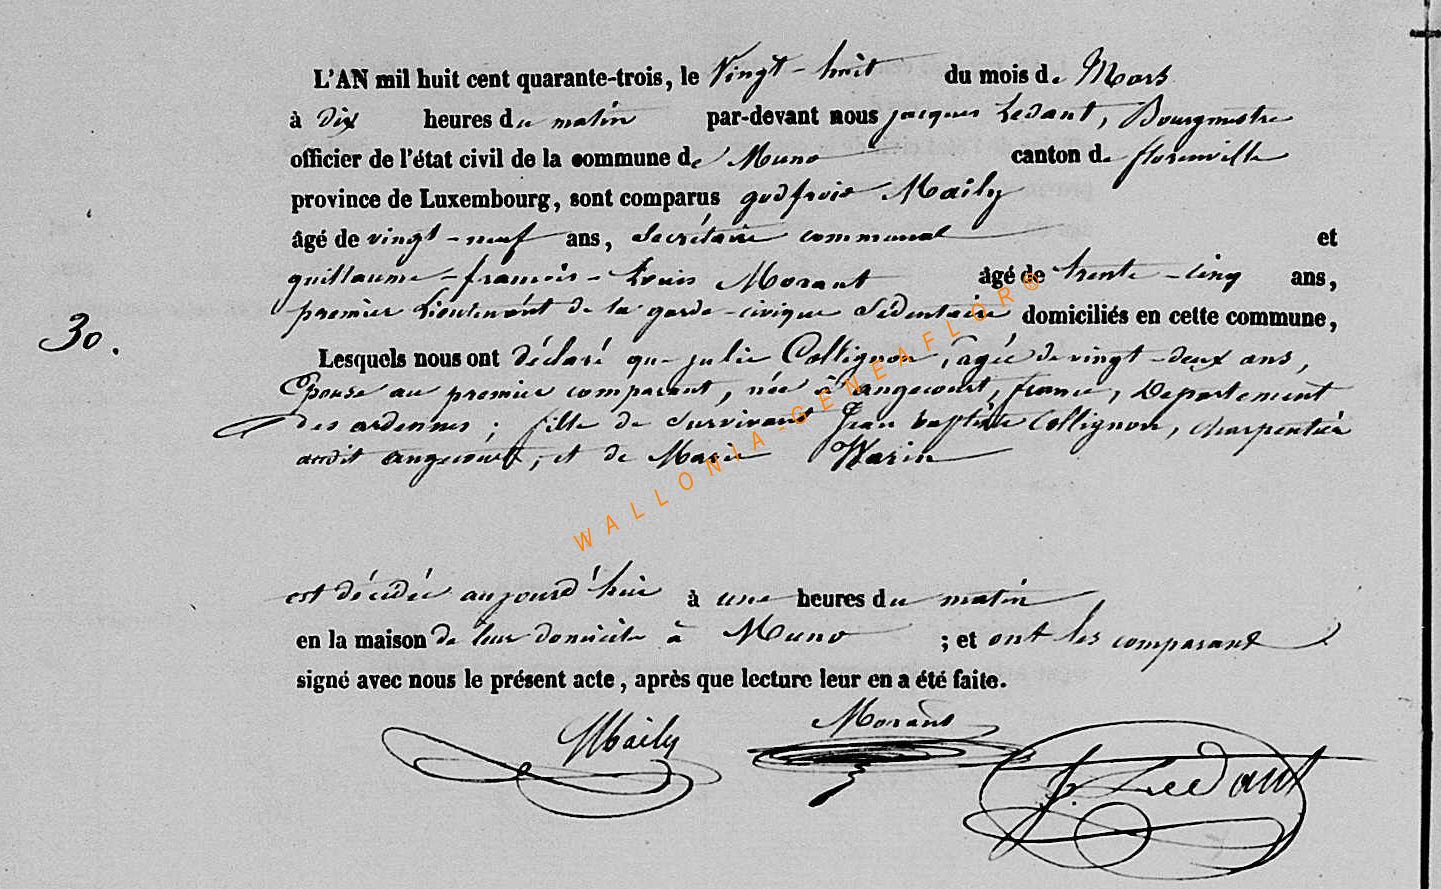 L'AN mil huit cent quarante-trois, le Vingt-huit du mois de Mars
à dix heures du matin par-devant nous jacques Ledant, Bourgmestre
officier de l'état civil de la commune de Muno canton de florenville
province de Luxembourg, sont comparus godfroid Maily
âgé de vingt-neuf ans, Secrétaire communal et
guillaume-francois-Louis Morant âgé de trente-cinq ans,
premier Lieutenant de la garde-civique Sédentaire domiciliés en cette commune,
30.
Lesquels nous ont déclaré que julie Collignon, agée de vingt-deux ans,
Epouse au premier comparant, née à angecourt, france, Departement
des ardennes; fille de Survivans Jean baptiste Collignon, charpentier
audit angecourt, et de Marie Warin
est décédée aujourd'hui à une heures du matin
en la maison de leur domicile à Muno ; et ont les comparant
signé avec nous le présent acte, après que lecture leur en a été faite.
Maily Morant J. Ledant
WALLONIA-GENEAFLOR®